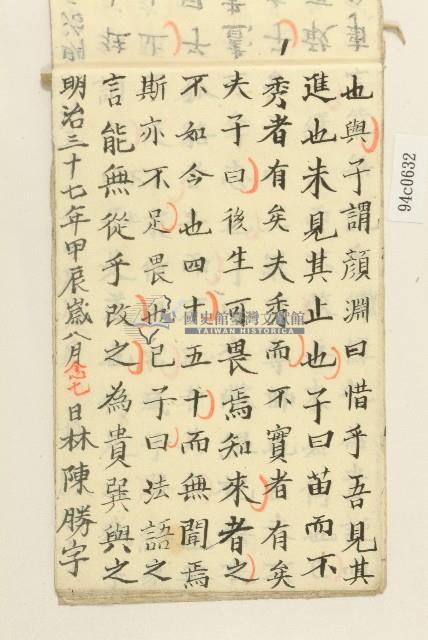 也與子謂顏淵曰惜乎吾見其
進也未見其止也子曰苗而不
秀者有矣夫秀而不實者有矣
夫子曰後生可畏焉知來者之
不如今也四十五十而無聞焉
斯亦不足畏也已子曰法語之
言能無從乎改之為貴巽與之
明治三十七年甲辰歲八月念七日林陳勝字
94c0632
國史館臺灣文獻館
TAIWAN HISTORICA